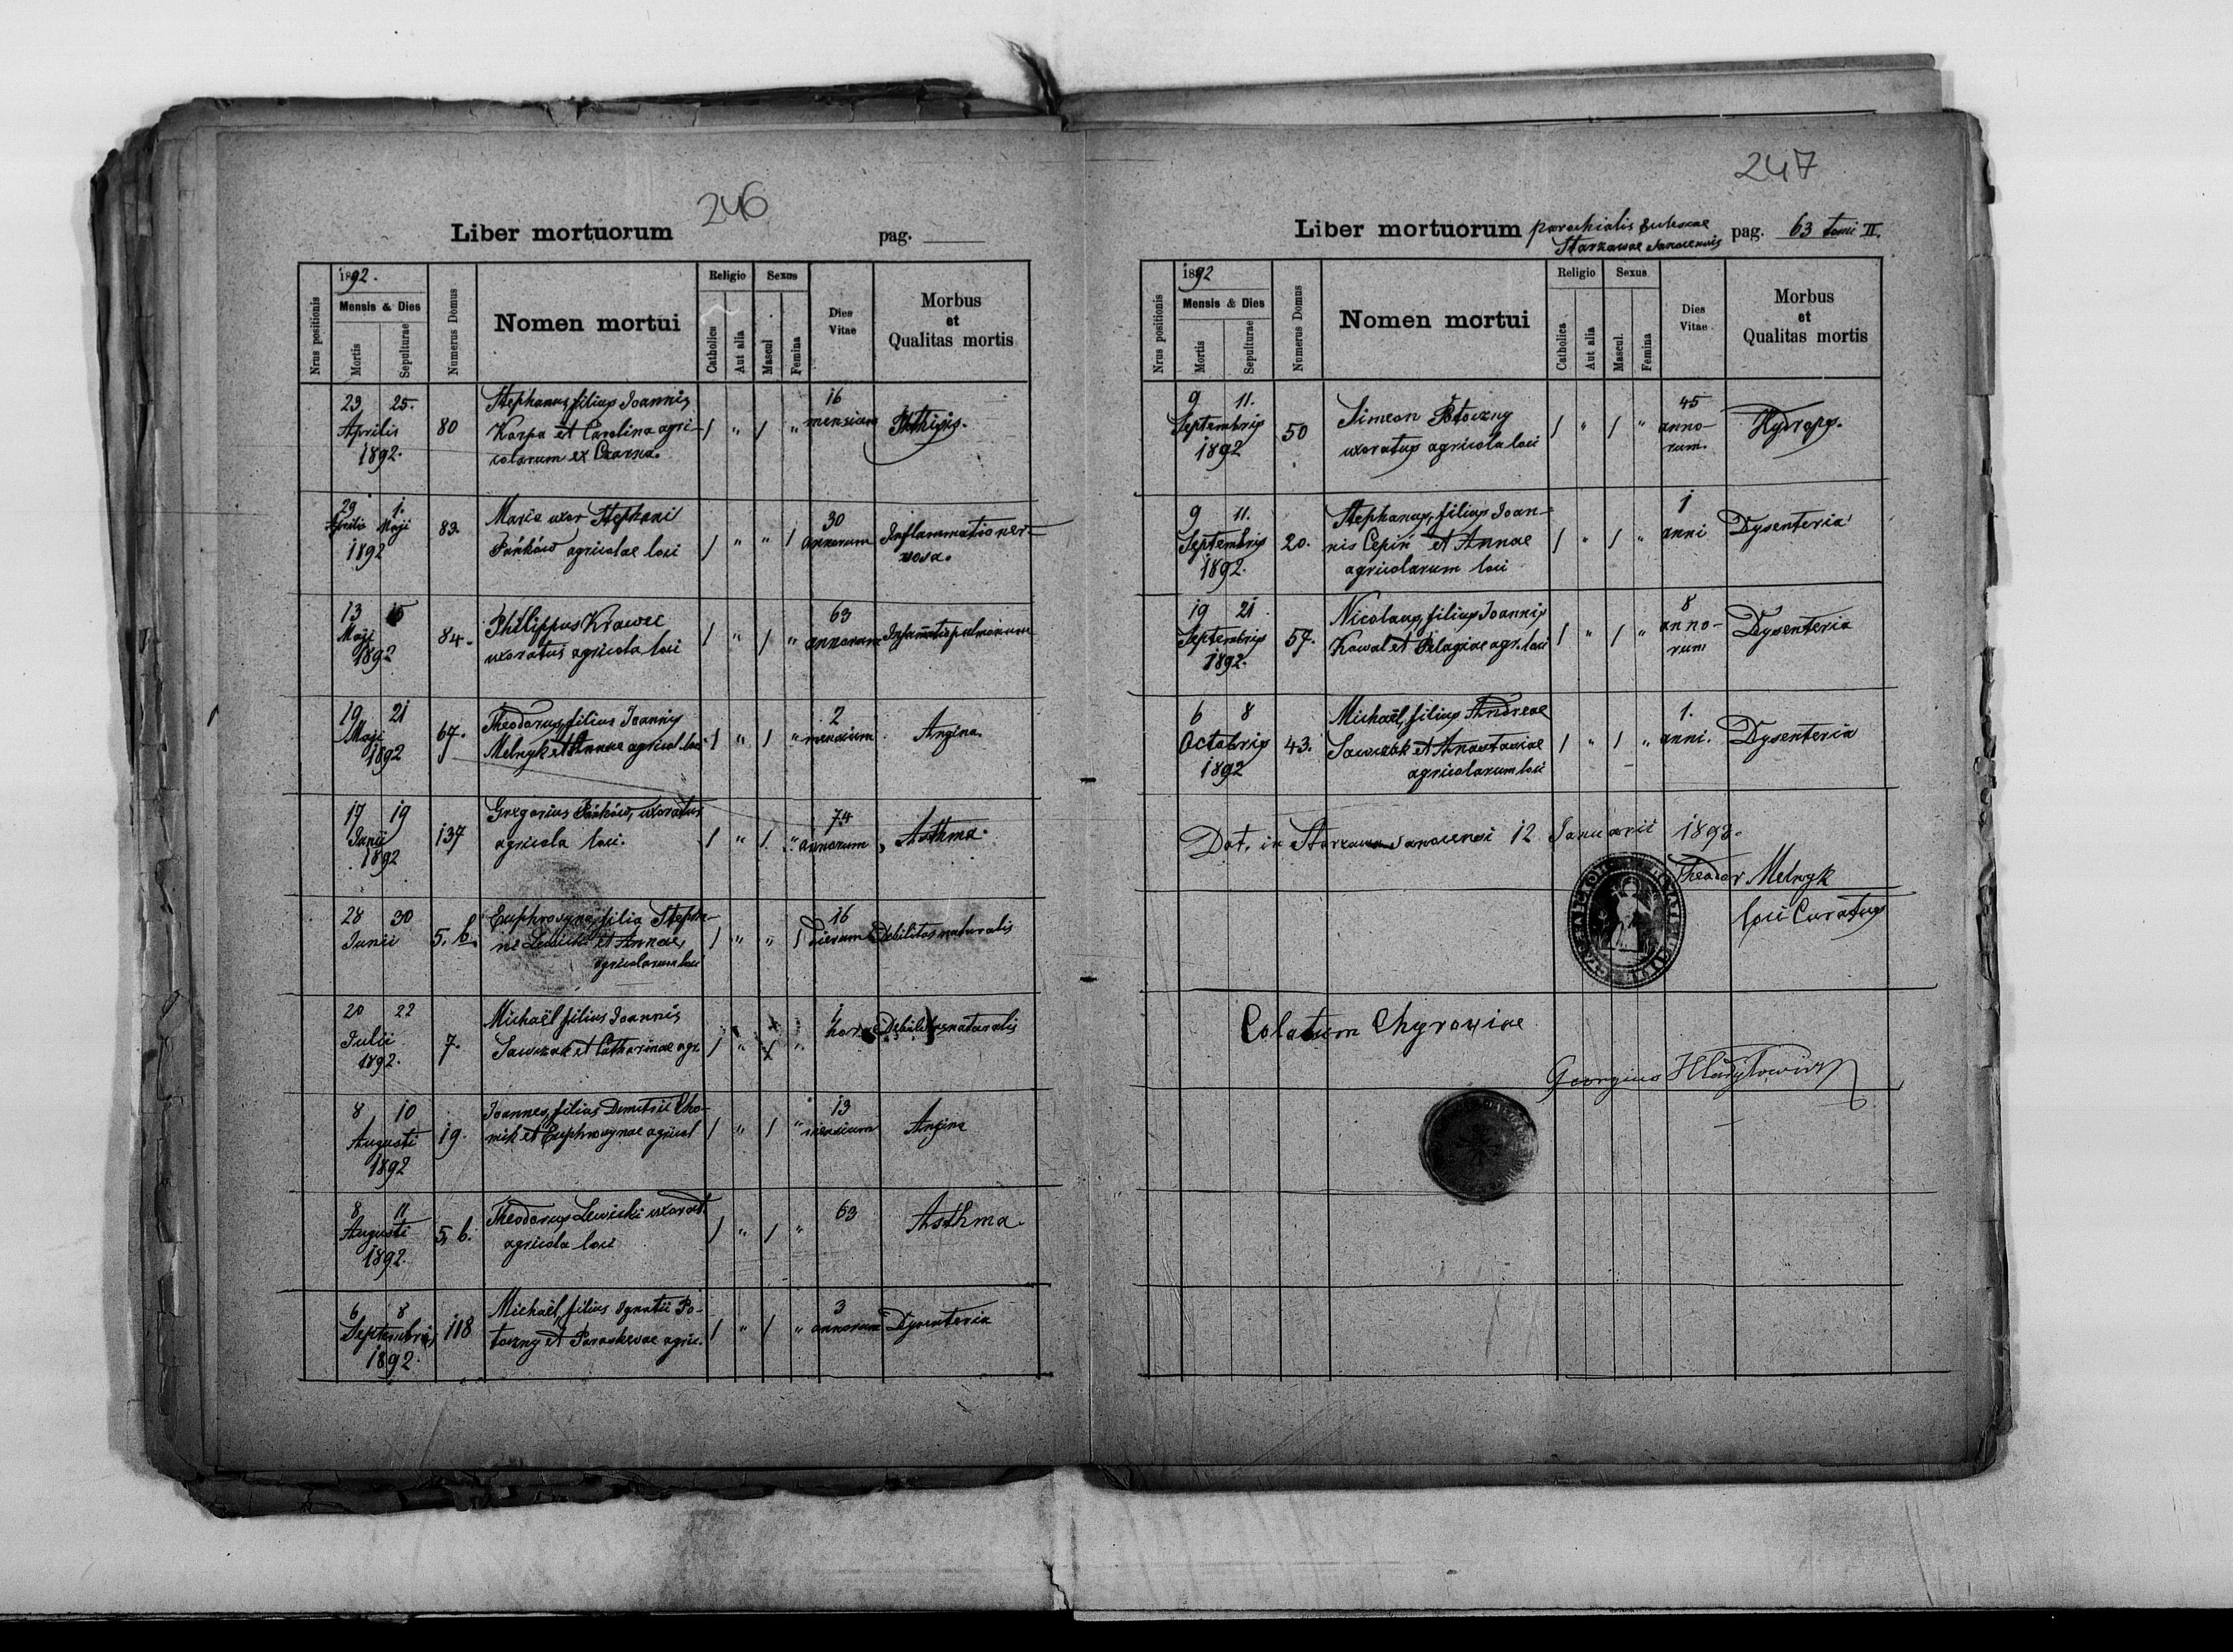 246
Liber mortuorum pag.
1892.
Nrus positionis
Mensis & Dies
Mortis
Sepulturae
Numerus Domus
Nomen mortui
Religio
Catholica
Aut alia
Sexus
Mascul
Femina
Dies
Vitae
Morbus
et
Qualitas mortis
23 25.
Aprilis
1892.
80
Stephanus, filius Joannis
Karpa et Carolina agri-
colarum ex Czarna.
/ " / "
16
mensium
Phthisis.
29 1.
Aprilis Maji
1892
83.
Maria uxor Stephani
Pańków agricolae loci
/ " " /
30
annorum
Inflammatio ner-
vosa.
13 15
Maji
1892
84.
Philippus Krawec
uxoratus agricola loci
/ " / "
63
annorum
Inflam̄atio pulmonum
19 21
Maji
1892
67.
Theodorus, filius Joannis
Melnyk et Annae agricol. loci
/ " / "
2
mensium
Angina.
17 19
Junii
1892
137
Gregorius Pańków, uxoratus
agricola loci.
/ " / "
74
annorum
Asthma.
28 30
Junii
5. b.
Euphrosyna, filia Stepha-
ni Lewicki et Annae,
agricolarum loci
/ " " /
16
dierum
Debilitas naturalis
20 22
Julii
1892.
7.
Michaël filius Joannis
Sawczak et Catharinae agr.
/ " / "
1
horae
Debilitas naturalis
8 10
Augusti
1892
19.
Joannes, filius Demetrii Cho-
mik et Euphrosynae agricol
/ " / "
13
mensium
Angina
8 11
Augusti
1892.
5, b.
Theodorus Lewicki uxorat.
agricola loci
/ " / "
63
Asthma.
6 8
Septembris
1892.
118
Michaël, filius Ignatii Po-
toczny et Paraskevae agric.
/ " / "
3
annorum
Dysenteria
247
Liber mortuorum parochialis
Starzawae Sanocensis
pag. 63 tomi II.
1892
Nrus positionis
Mensis & Dies
Mortis
Sepulturae
Numerus Domus
Nomen mortui
Religio
Catholica
Aut alia
Sexus
Mascul.
Femina
Dies
Vitae
Morbus
et
Qualitas mortis
9 11.
Septembris
1892
50
Simeon Potoczny
uxoratus agricola loci
/ " / "
45
anno-
rum.
Hydrops.
9 11.
Septembris
1892.
20.
Stephanus, filius Joan-
nis Cepiń et Annae
agricolarum loci
/ " / "
1
anni
Dysenteria
19 21
Septembris
1892.
57.
Nicolaus, filius Joannis
Kowal et Pelagiae agr. loci
/ " / "
8
anno-
rum
Dysenteria
6 8
Octobris
1892
43.
Michaël, filius Andreae
Sawczak et Anastasiae
agricolarum loci
/ " / "
1.
anni.
Dysenteria
Dat. in Starzawa Sanocensi 12 Januarii 1893.
Theodor Melnyk
loci Curatus
Colatum Chyroviae
Georgius